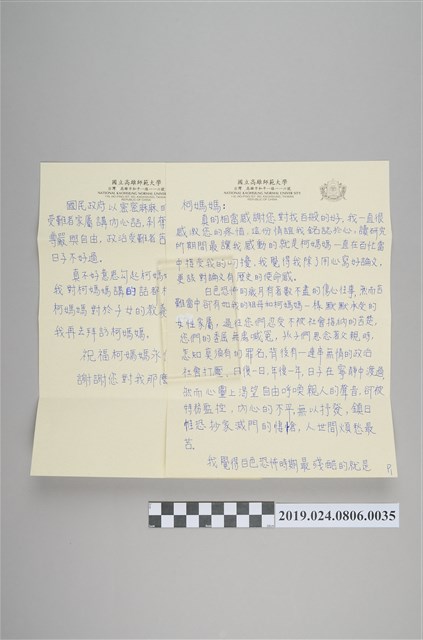 國立高雄師範大學
NATIONAL KAOHSIUNG NORMAL UNIVERSITY
柯媽媽：
真的相當感謝您對我百般的好，我一直很
感激您的恩情，這份情誼我銘誌於心，讀研究
所期間最讓我感動的就是柯媽媽一直在百忙當
中接受我的叨擾，我覺得我除了用心寫好論文，
更該對論文有歷史的使命感。
白色恐怖的歲月有著數不盡的傷心往事，然而苦
難當中卻有如我的祖母如柯媽媽一樣默默承受的
女性家屬，還往您們忍受不被社會接納的苦楚。
您們的委屈無處喊冤，孩子們思念著父親，
怎知莫須有的罪名，背後有一連串無情的政治
社會打壓，日復一日，年復一年，日子在寧靜中渡過，
然而心靈上渴望自由呼喚親人的聲音，卻被
特務監控，內心的不平無以抒發，鎮日
惟恐抄家滅門的情愴，人世間煩愁最
苦。
我覺得白色恐怖時期最殘酷的就是
P1
國立高雄師範大學
國民政府以密密麻麻
受難者家屬講內心話，剝奪
尊嚴與自由，政治受難者
日子不好過。
真不好意思勾起柯媽媽
我對柯媽媽講的話都
柯媽媽對於子女的教養
我再去拜訪柯媽媽。
祝福柯媽媽永
謝謝您對我那麼
2019.024.0806.0035